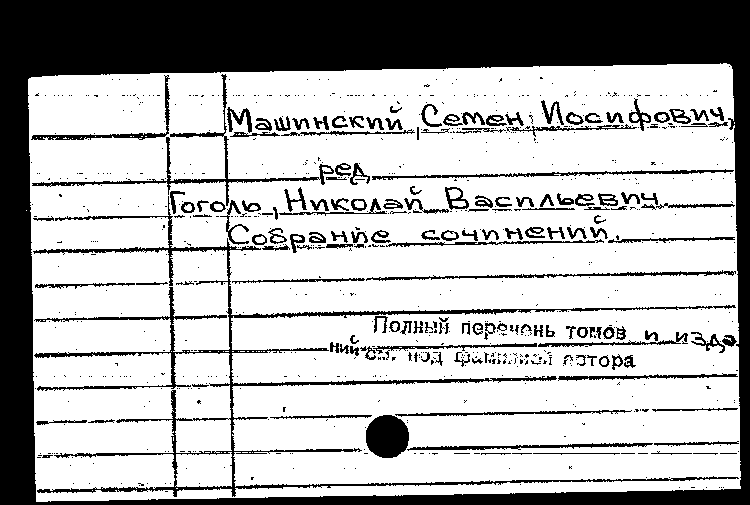 Машинский, Семен Иосифович,
ред.
Гоголь, Николай Васильевич.
Собрание сочинений.
Полный перечень томов и изда
ний см. под фамилией автора